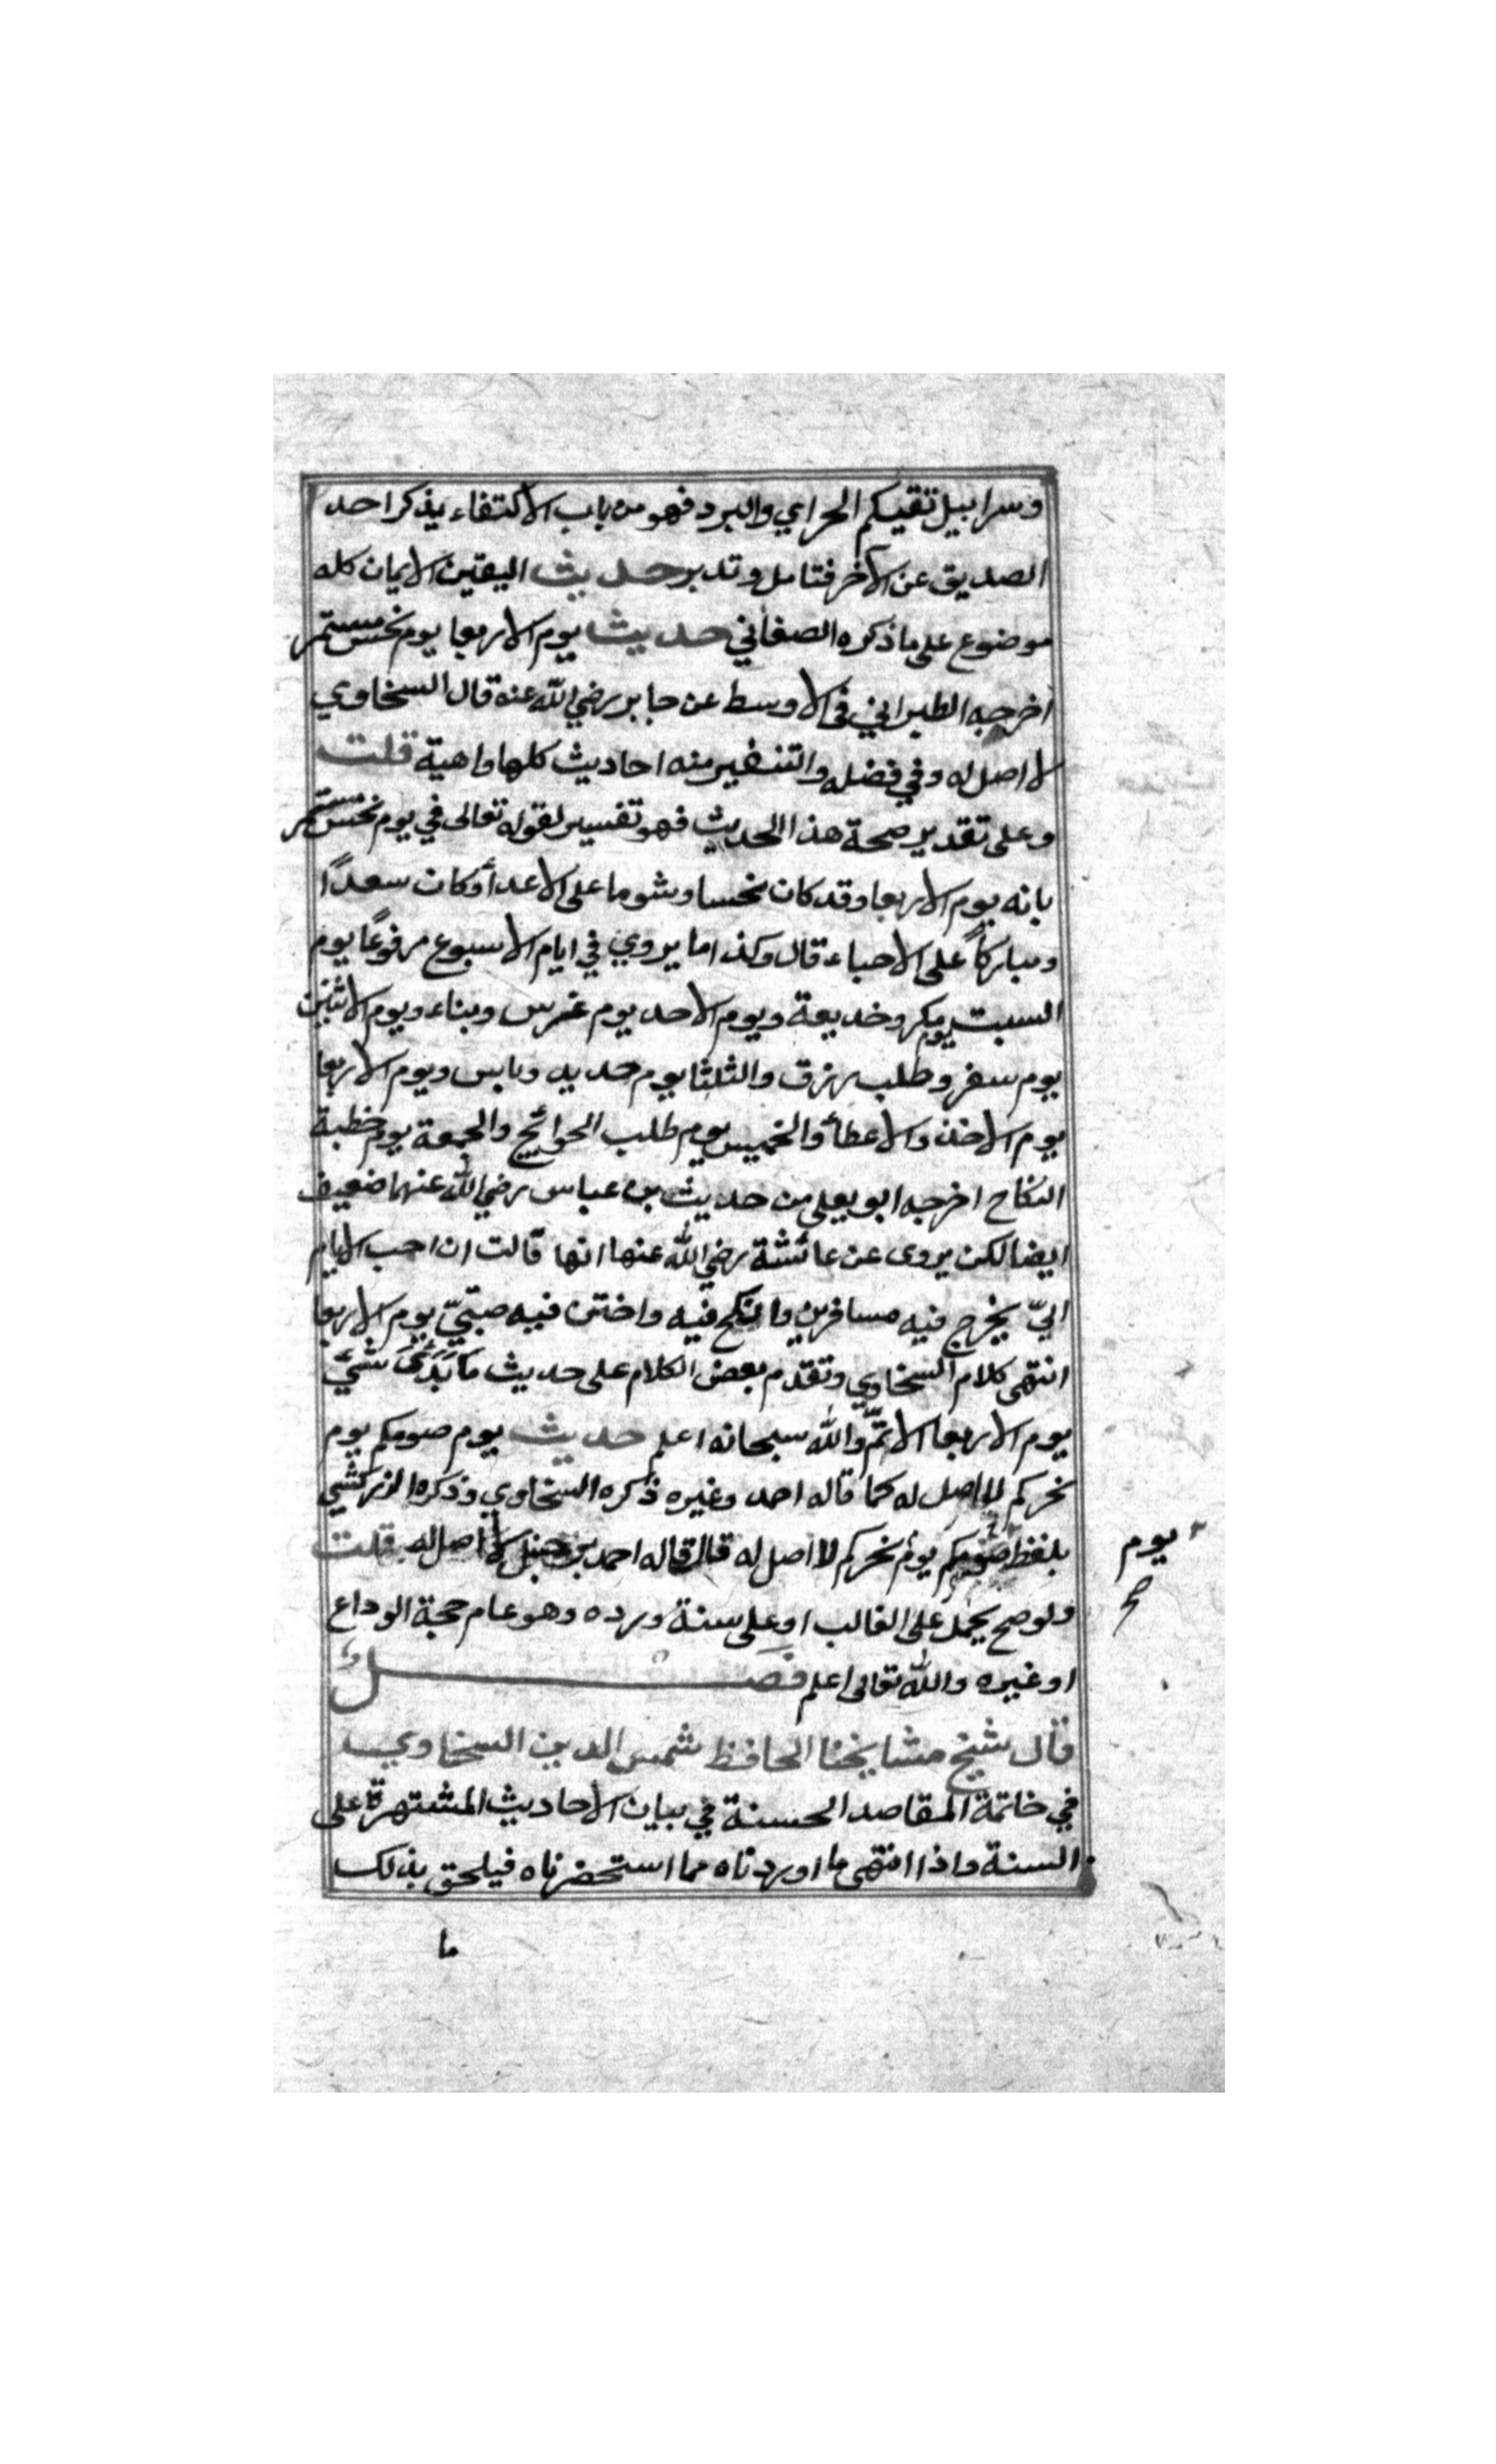 وسرابيل تقيكم الحر اي والبرد فهو من باب الاكتفاء بذكر احد
الصديق عن الآخر فتامل وتدبر حديث اليقين الايمان كله
موضوع على ما ذكره الصغاني حديث يوم الاربعا يوم نحس مستمر
اخرجه الطبراني في الاوسط عن جابر رضي الله عنه قال السخاوي
لا اصل له وفي فضله والتنفير منه احاديث كلها واهية قلت
وعلى تقدير صحة هذا الحديث فهو تفسير لقوله تعالى في يوم نحس مستمر
بانه يوم الاربعا وقد كان نحسا وشوما على الاعدأ وكان سعدًا
ومباركاً على الاحباء قال وكذا ما يروي في ايام الاسبوع مرفوعًا يوم
السبت يوم مكر وخديعة ويوم الاحد يوم غرس وبناء ويوم الاثنين
يوم سفر وطلب رزق والثلثا يوم حديد وباس ويوم الاربعا
يوم الاخذ والاعطأ والخميس يوم طلب الحوائج والجمعة يوم خطبة
النكاح اخرجه ابو يعلى من حديث بن عباس رضي الله عنهما ضعيف
ايضا لكن يروى عن عائشة رضي الله عنها انها قالت ان احب الايام
اليّ يخرج فيه مسافرين وانكح فيه واختن فيه صبيّ يوم الاربعا
انتهى كلام السخاوي وتقدم بعض الكلام على حديث ما بَدَئ شئ
يوم الاربعا الا تمّ والله سبحانه اعلم حديث يوم صومكم يوم
نحركم لا اصل له كما قاله احمد وغيره ذكره السخاوي وذكره الزركشي
بلفظ صومكم يوم نحركم لا اصل له قال قاله احمد بن حنبل لا اصل له قلت
يوم
صح
ولو صح يحمل على الغالب او على سنة ورده وهو عام حجة الوداع
او غيره والله تعالى اعلم فصل
قال شيخ مشايخنا الحافظ شمس الدين السخاوي
في خاتمة المقاصد الحسنة في بيان الاحاديث المشتهرة على
السنة واذا انتهى ما اوردناه مما استحضرناه فيلحق بذلك
ما